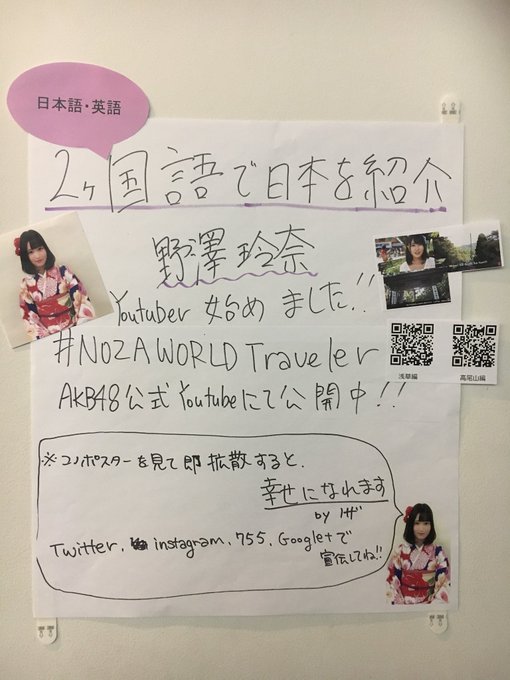 日本語・英語
2ヶ国語で日本を紹介
野澤玲奈
Youtuber 始めました!!
#NOZA WORLD Traveler
AKB48公式Youtubeにて公開中!!
浅草編
高尾山編
※コノポスターを見て即拡散すると、
幸せになれます
by ノザ
Twitter、instagram、755、Google+で
宣伝してね!!